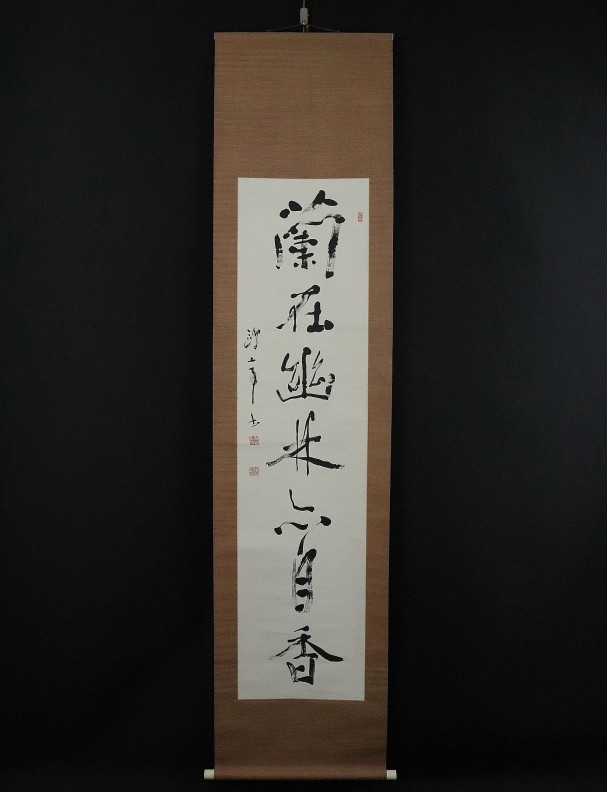 蘭在幽林亦自香